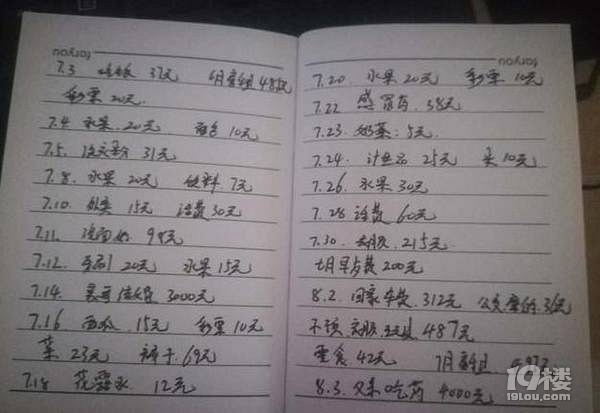 7.3 吃饭 37元 6月房租48元
彩票 20元
7.4 水果 20元 面包 10元
7.5 洗衣粉 31元
7.8 水果 20元 饮料 7元
7.10 外卖 15元 话费 30元
7.11 洗面奶 98元
7.12 20元 水果 15元
7.14 表哥 3000元
7.16 西瓜 15元 彩票 10元
菜 23元 裤子 69元
7.18 花露水 12元
7.20 水果 20元 彩票 10元
7.22 感冒药 38元
7.23 奶茶 5元
7.24 25元 10元
7.26 水果 30元
7.28 话费 60元
7.30 衣服 215元
七月早点费 200元
8.2 回家车费 312元
衣服 487元
零食 42元 7月房租
8.3 父亲吃药 4000元
19楼
19lou.com